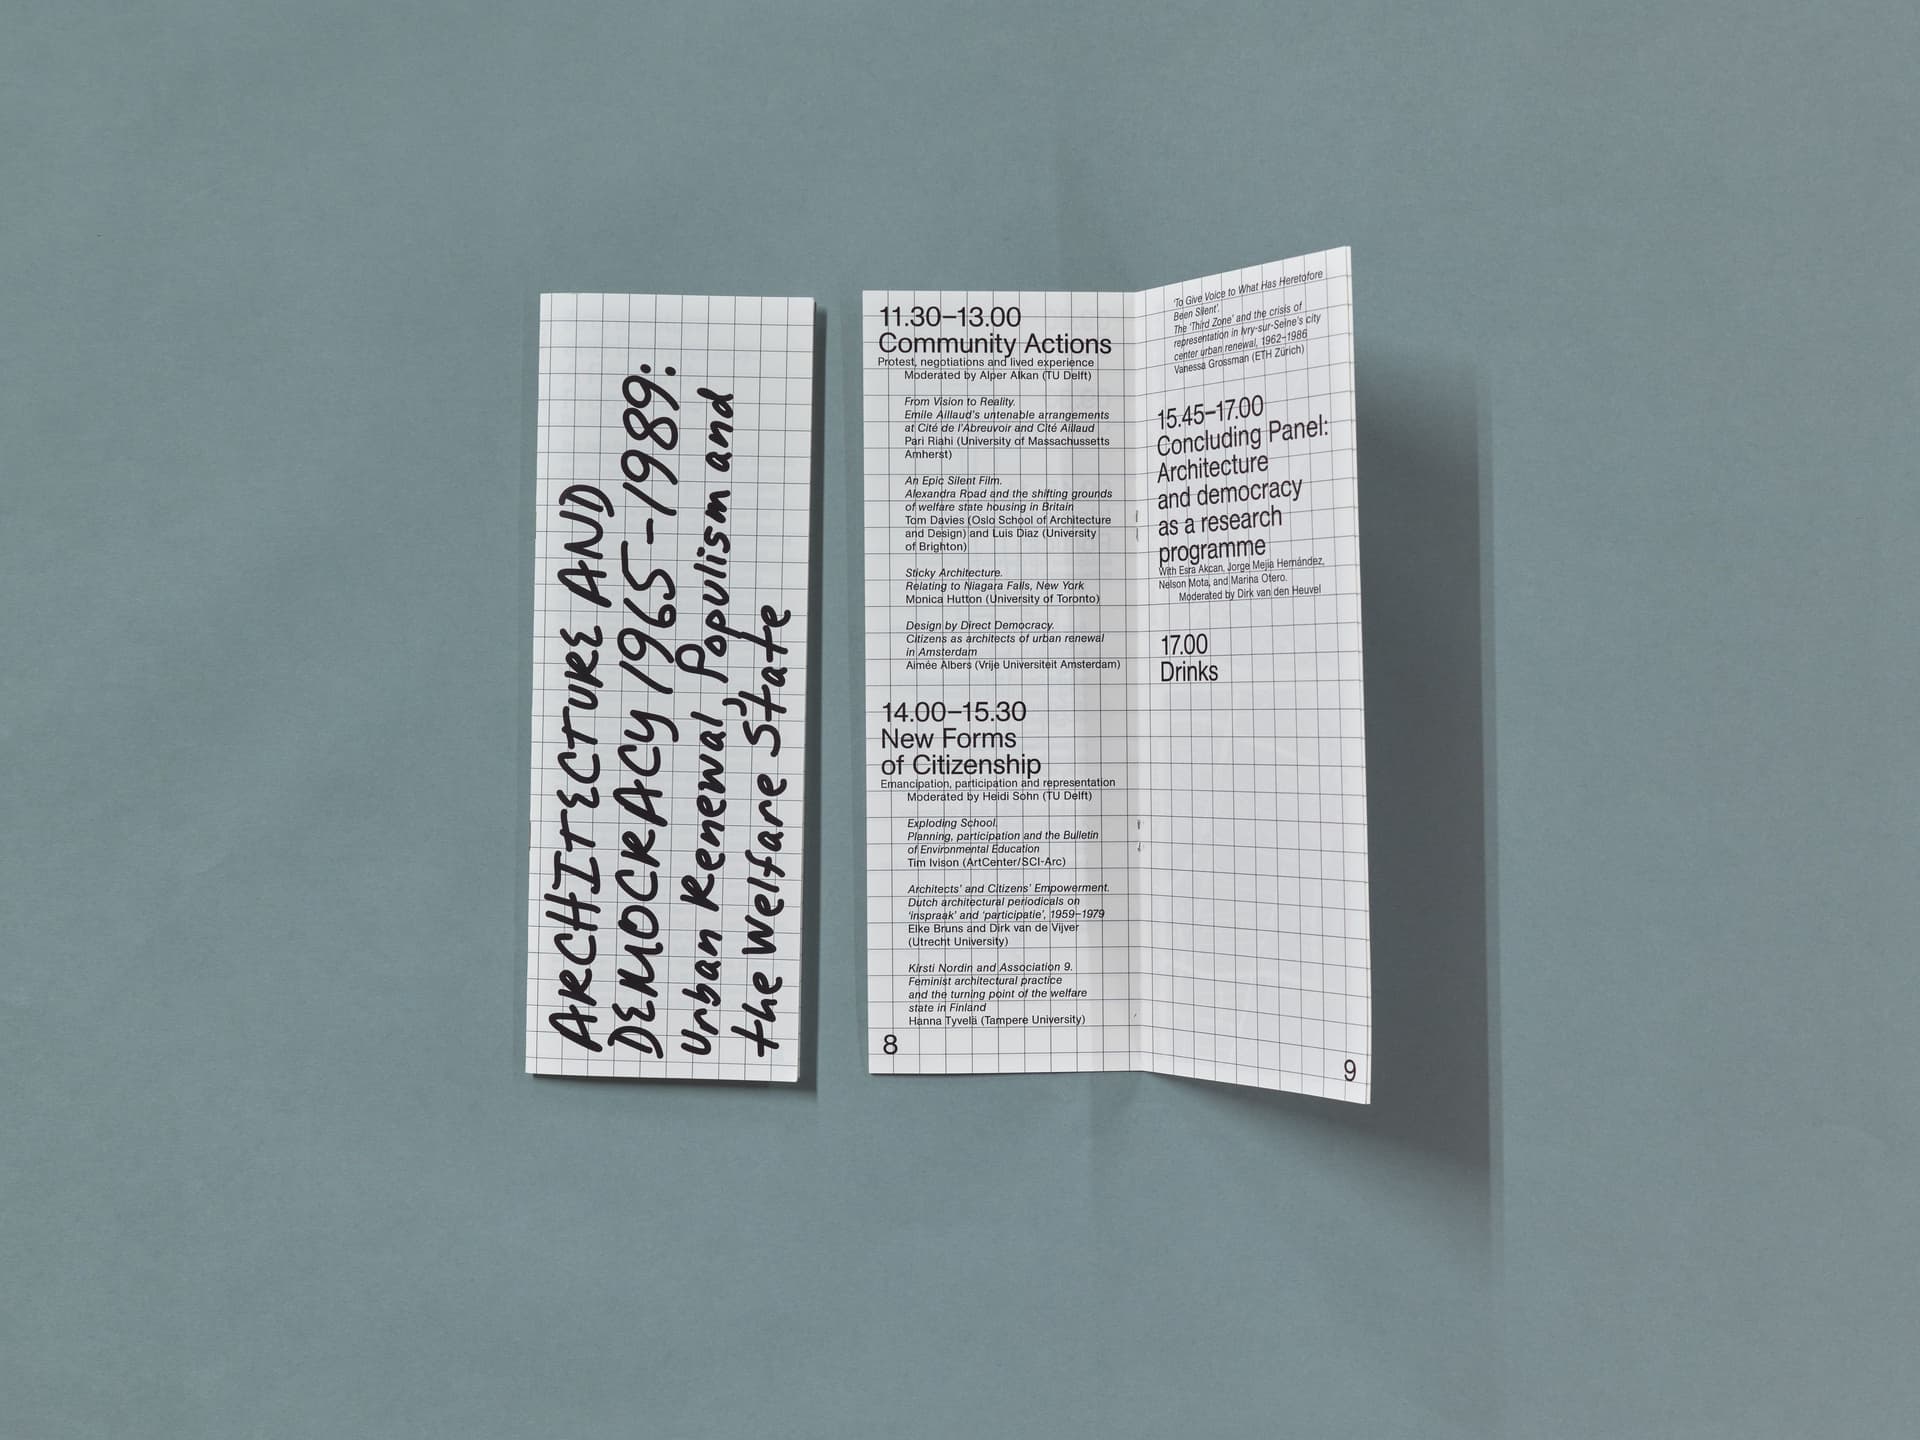 ARCHITECTURE AND
DEMOCRACY 1965-1989:
Urban Renewal, Populism and
the Welfare State
11.30–13.00
Community Actions
Protest, negotiations and lived experience
Moderated by Alper Alkan (TU Delft)
From Vision to Reality.
Emile Aillaud's untenable arrangements
at Cité de l'Abreuvoir and Cité Aillaud
Pari Riahi (University of Massachussetts
Amherst)
An Epic Silent Film.
Alexandra Road and the shifting grounds
of welfare state housing in Britain
Tom Davies (Oslo School of Architecture
and Design) and Luis Diaz (University
of Brighton)
Sticky Architecture.
Relating to Niagara Falls, New York
Monica Hutton (University of Toronto)
Design by Direct Democracy.
Citizens as architects of urban renewal
in Amsterdam
Aimée Albers (Vrije Universiteit Amsterdam)
14.00–15.30
New Forms
of Citizenship
Emancipation, participation and representation
Moderated by Heidi Sohn (TU Delft)
Exploding School.
Planning, participation and the Bulletin
of Environmental Education
Tim Ivison (ArtCenter/SCI-Arc)
Architects' and Citizens' Empowerment.
Dutch architectural periodicals on
'inspraak' and 'participatie', 1959–1979
Elke Bruns and Dirk van de Vijver
(Utrecht University)
Kirsti Nordin and Association 9.
Feminist architectural practice
and the turning point of the welfare
state in Finland
Hanna Tyvelä (Tampere University)
8
'To Give Voice to What Has Heretofore
Been Silent'.
The 'Third Zone' and the crisis of
representation in Ivry-sur-Seine's city
center urban renewal, 1962–1986
Vanessa Grossman (ETH Zürich)
15.45–17.00
Concluding Panel:
Architecture
and democracy
as a research
programme
With Esra Akcan, Jorge Mejía Hernández,
Nelson Mota, and Marina Otero.
Moderated by Dirk van den Heuvel
17.00
Drinks
9